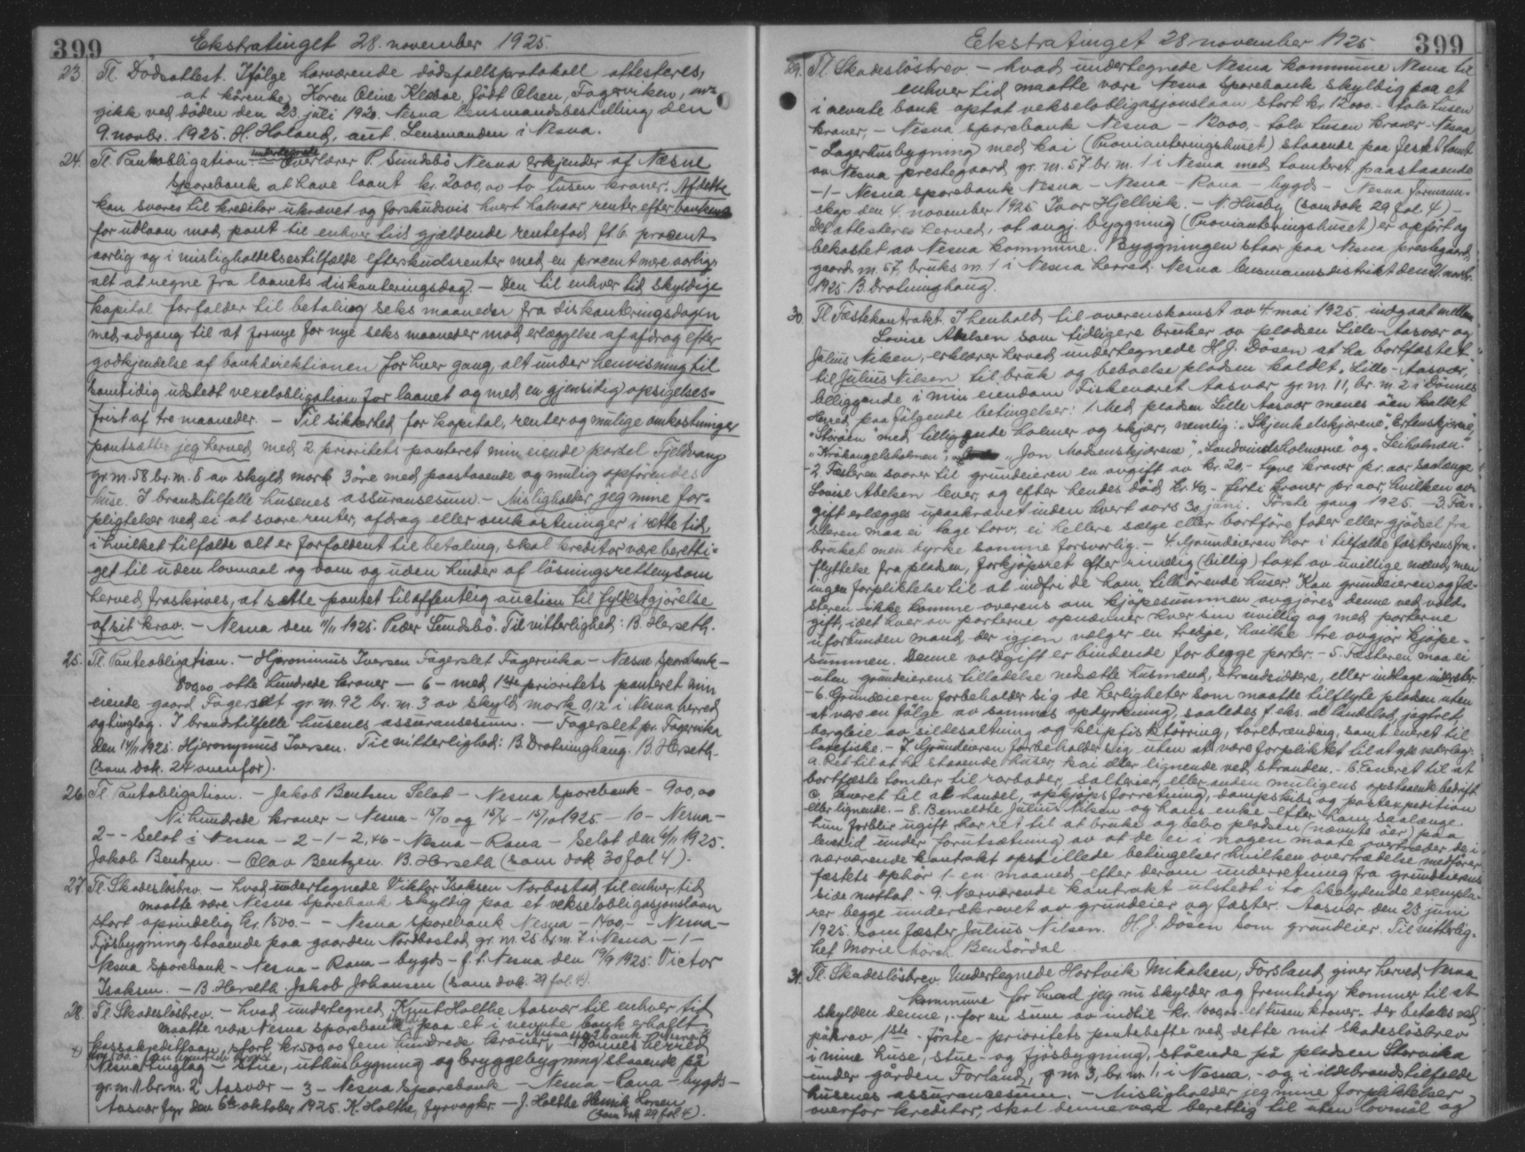 399 Ekstratinget 28. november 1925.
23. Tl. Dödsattest. Ifölge hærværende dödsfallsprotokoll attesteres,
at kårenke, Karen Oline Klæboe, födt Olsen, Fagervika, av-
gikk ved döden den 23 juli 1920. Nesna lensmandsbestilling den
9. novbr. 1925. H. Haland, aut. Lensmanden i Nesna.
24. Tl. Panteobligation. undertegnede Overlærer P. Sundsbö Nesna erkjender af Næsne
Sparebank at have laant kr. 2000,00 to tusen kroner. Af dette
kan svares til kreditor ukrævet og forskudsvis hvert halvaar renter efter bankens
for udlaan mod pant til enhver tid gjældende rentefod f.t. 6 procent
aarlig og i misligholdelsestilfælde efterskudsrenter med en procent mere aarlig,
alt at regne fra laanets diskonteringsdag. - Den til enhver tid skyldige
kapital forfalder til betaling seks maaneder fra diskonteringsdagen
med adgang til at fornye for nye seks maaneder mod erlæggelse af afdrag efter
godkjendelse af bankdirektionen for hver gang, alt under henvisning til
samtidig udstedt vexelobligation for laanet og med en gjensidig opsigelses-
frist af tre maaneder. - Til sikkerhed for kapital, renter og mulige omkostninger
pantsætter jeg herved med 2 prioritets panteret min eiende parzel Fjeldvang
gr. nr. 58 br. nr. 8 av skyld mark 3 öre med paastaaende og mulig opförendes
huse. I brandtilfelle husenes assuransesum. - Misligholder jeg mine for-
pligtelser ved ei at svare renter, afdrag eller omkostninger i rette tid,
i hvilket tilfælde alt er forfaldent til betaling, skal kreditor være beretti-
get til uden lovmaal og dom og uden hinder af lösningsretten, som
herved fraskrives, at sætte pantet til offentlig auction til fyldestgjörelse
af sit krav. - Nesna den 11/11 1925. Peder Sundsbö. Til vitterlighed: B. Herseth.
25. Tl. Panteobligation. - Hjeronimus Iversen Fagerslet Fagervika - Næsne Sparebank -
800,00 otte hundrede kroner - 6 - med 1ste prioritets panteret min
eiende gaard Fagerslet gr. nr. 92 br. nr. 3 av skyld mark 0,12 i Nesna herred
og tinglag. I brandtilfelle husenes assuransesum. - Fagerslet pr. Fagervika
den 14/11 1925. Hjeronymus Iversen. Til vitterlighed: B. Drotninghaug. B. Herseth.
(som dok. 24 ovenfor).
26. Tl. Pantobligation. - Jakob Bentzen Seløt - Nesna Sparebank - 900,00
Ni hundrede kroner - Nesna - 15/10 og 15/4 - 15/10 1925 - 10 - Nesna -
2 - - Seløt i Nesna - 2 - 1 - 2,46 - Nesna - Rana - Seløt den 4/11 1925.
Jakob Bentzen. - Olav Bentzen. B. Herseth (som dok 30 fol 4).
27. Tl. Skadeslösbrev. - hvad undertegnede Viktor Isaksen Norbostad til enhver tid
maatte være Nesna Sparebank skyldig paa et vekselobligasjonslaan
stort oprindelig kr. 1500.- - Nesna Sparebank Nesna - 1400.- - Nesna -
Fjösbygning staaende paa gaarden Nordbostad gr. nr. 25 br. nr. 7 i Nesna - 1 -
Nesna Sparebank - Nesna - Rana - bygds - f.t. Nesna den 19/9 1925. Victor
Isaksen. - B. Herseth. Jakob Johansen (som dok. 29 fol 4).
28. Tl. Skadeslösbrev. - hvad undertegned Knut Holthe Aasvær til enhver tid
maatte være Nesna Sparebank paa et i nevnte bank erholdt
kassakredittlaan, stort kr. 500,00 fem hundrede kroner, - Nesna Sparebank Nesna -
500,00 - fem hundrede kroner - Dønnes herred
Nesna tinglag - Stue, uthusbygning og bryggebygning staaende på
gr. nr. 11 br. nr. 2 Aasvær - 3 - Nesna Sparebank - Nesna - Rana - bygds -
Aasvær fyr den 6te oktober 1925. K. Holthe, fyrvogter - J. Holthe Henrik Larsen
(som dok 29 fol 4).
Ekstratinget 28 november 1925 399
29. Tl. Skadeslösbrev - hvad undertegnede Nesna kommune Nesna til
enhver tid maatte være Nesna Sparebank skyldig paa et
i nevnte bank optat vekselobligasjonslaan stort kr. 12000.- tolv tusen
kroner, - Nesna Sparebank Nesna - 12000,- tolv tusen kroner - Nesna
- Lagerhusbygning med kai (Provianteringshuset) staaende paa festet tomt
av Nesna prestegaard gr. nr. 57 br. nr. 1 i Nesna med tomteret paastaaende
- 1 - Nesna Sparebank Nesna - Nesna - Rana - bygds - Nesna formann-
skap den 4. november 1925 Ivar Hjellvik. - N. Husby (som dok 29 fol. 4) -
Det attesteres herved, at angj. byggning (Provianteringshuset) er opfört og
bekostet av Nesna kommune. Byggningen staar paa Nesna prestegaard,
gaards nr. 57, bruks nr. 1 i Nesna herred. Nesna lensmannsdistrikt den 21 novbr.
1925. B. Drotninghaug.
30. Tl. Festekontrakt. I henhold til overenskomst av 4. mai 1925 indgaat mellem
Lovise Abelsen som tidligere bruker av pladsen Lille-Aasvær og
Julius Nilsen, erklærer herved undertegnede H.J. Dösen at ha bortfæstet
til Julius Nilsen til bruk og beboelse pladsen kaldet "Lille-Aasvær",
beliggende i min eiendom Fiskeværet Aasvær gr. nr. 11, br. nr. 2 i Dönnes
Herred paa fölgende betingelser: 1. Med pladsen Lille Aasvær menes öen kaldet
"Storöen" med tilliggende holmer og skjær, nemlig: "Skjenkelskjærene", "Ertenskjærene",
"Kråkungelsholmen", "Jon Madsenskjærene", "Landvindsholmerne" og "Leiholmen"
- 2. Fæsteren svarer til grundeieren en avgift av kr. 20,- tyve kroner pr. aar saalænge
Lovise Abelsen lever, og efter hendes död kr. 40,- førti kroner pr. aar, hvilken av-
gift erlægges upaakrævet inden hvert aars 30 juni. Förste gang 1925. - 3. Fæ-
steren maa ei tage torv, ei hellere sælge eller bortföre foder eller gjödsel fra
bruket men dyrke samme forsvarlig. - 4. Grundeieren har i tilfælde fæsterens fra-
flyttelse fra pladsen, forkjöpsret efter rimelig (billig) takst av uvillige mænd, men
ingen forpliktelse til at indfri de ham tilhörende huser. Kan grundeieren og fæ-
steren ikke komme overens om kjöpesummen avgjöres denne ved vold-
gift, idet hver av parterne opnævner hver sin uvillig og med parterne
uforbunden mand, der igjen vælger en tredje, hvilke tre avgjör kjöpe-
summen. Denne voldgift er bindende for begge parter. - 5. Fæsteren maa ei
uten grundeierens tilladelse nedsætte husmænd, strandsiddere, eller indtage inderster
- 6. Grundeieren forbeholder sig de herligheter som maatte tilflyte pladsen uten
at være en fölge av sammes opdyrkning, saaledes f. eks. at landslot, jagtret,
bergleie av sildesaltning og klipfisktörring, tarebrænding, samt eneret til
laksefiske. - 7. Grundeieren forbeholder sig uten at være forpliktet til at gi vederlag:
a. Ret til at ha staaende huser, kai eller lignende ved stranden. - b. Eneret til at
bortfæste tomter til rorboder, saltrier, eller anden muligens opstaaende bedrift
c. Eneret til at handel, opkjöpsforretning, dampskibs og postexpedition
eller lignende. - 8. Bemeldte Julius Nilsen og hans enke efter ham saalænge
hun forblir ugift har ret til at bruke og bebo pladsen (nævnte öer) paa
levetid under forutsætning av at de ei i nogen maate overtræder de i
nærværende kontrakt opstillede betingelser hvilken overtrædelse medförer
fæstets ophör 1 en maaned efter derom underretning fra grundeierens
side mottat. - 9. Nærværende kontrakt utstedt i to likelydende exempla-
rer begge underskrevet av grundeier og fæster. Aasvær den 23 juni
1925. Som fæster Julius Nilsen. H.J. Dösen som grundeier. Til vitterlig-
het Marie Ben Sördal.
31. Tl. Skadeslösbrev. Undertegnede Hartvik Mikalsen, Forsland, giver herved Nesna
kommune for hvad jeg nu skylder og fremtidig kommer til at
skylden denne, - for en sum av indtil kr. 1000,00. et tusen kroner - der betales ved
påkrav 1ste - förste - prioritets panteheftе ved dette mit skadeslösbrev
i mine huse, stue - og fjösbygning, stående på pladsen Storvika
under gården Forland, g. nr. 3, br. nr. 1, i Nesna, - og i ildebrandstilfelde
husenes assurancesum. - Misligholder jeg mine forpliktelser
overfor kreditor, skal denne være berettig til uten lovmål og